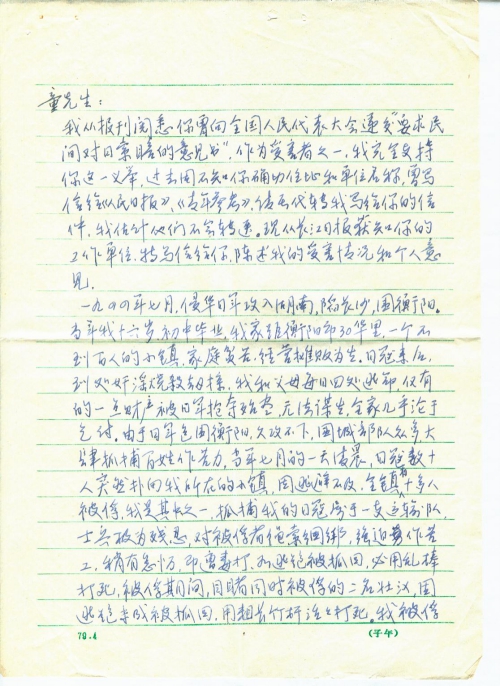 童先生：
我从报刊阅悉你曾向全国人民代表大会递交"要求民
间对日索赔的意见书"，作为受害者之一，我完全支持
你这一义举，过去因不知你确切住址和单位名称，曾写
信给《人民日报》、《青年参考》，请求代转我写给你的信
件，我估计他们不会转递。现从长江日报获知你的
工作单位，特写信给你，陈述我的受害情况和个人意
见。
一九四四年七月，侵华日军攻入湖南，陷长沙，围衡阳。
当年我十六岁，初中毕业，我家距衡阳市30华里，一个不
到百人的小镇，家庭贫苦，经营摊贩为生，日寇来后，
到处奸淫烧杀掳掠，我和父母每日四处逃命，仅有
的一点财产被日军抢夺殆尽，无法谋生，全家几乎沦于
乞讨。由于日军包围衡阳，久攻不下，围城部队众多，大
肆抓捕百姓作苦力，当年七月的一天凌晨，日寇数十
人突然扑向我所在的小镇，因逃避不及，全镇有十多人
被俘，我是其中之一，抓捕我的日寇属于一支运输队，
士兵极为残忍，对被俘者绳索捆绑，强迫劳作苦
工，稍有怠忽，即遭毒打，如逃跑被抓回，必用乱棒
打死，被俘期间，目睹同时被俘的二名壮汉，因
逃跑未成被抓回，用粗长竹杆活活打死。我被俘
70.4
(子午)